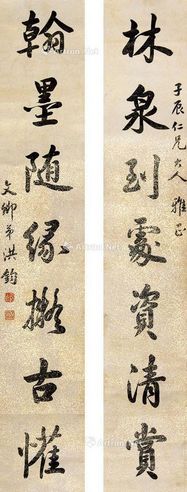 林泉到處資清賞
子辰仁兄大人雅正
翰墨隨緣擬古懽
文卿弟洪鈞